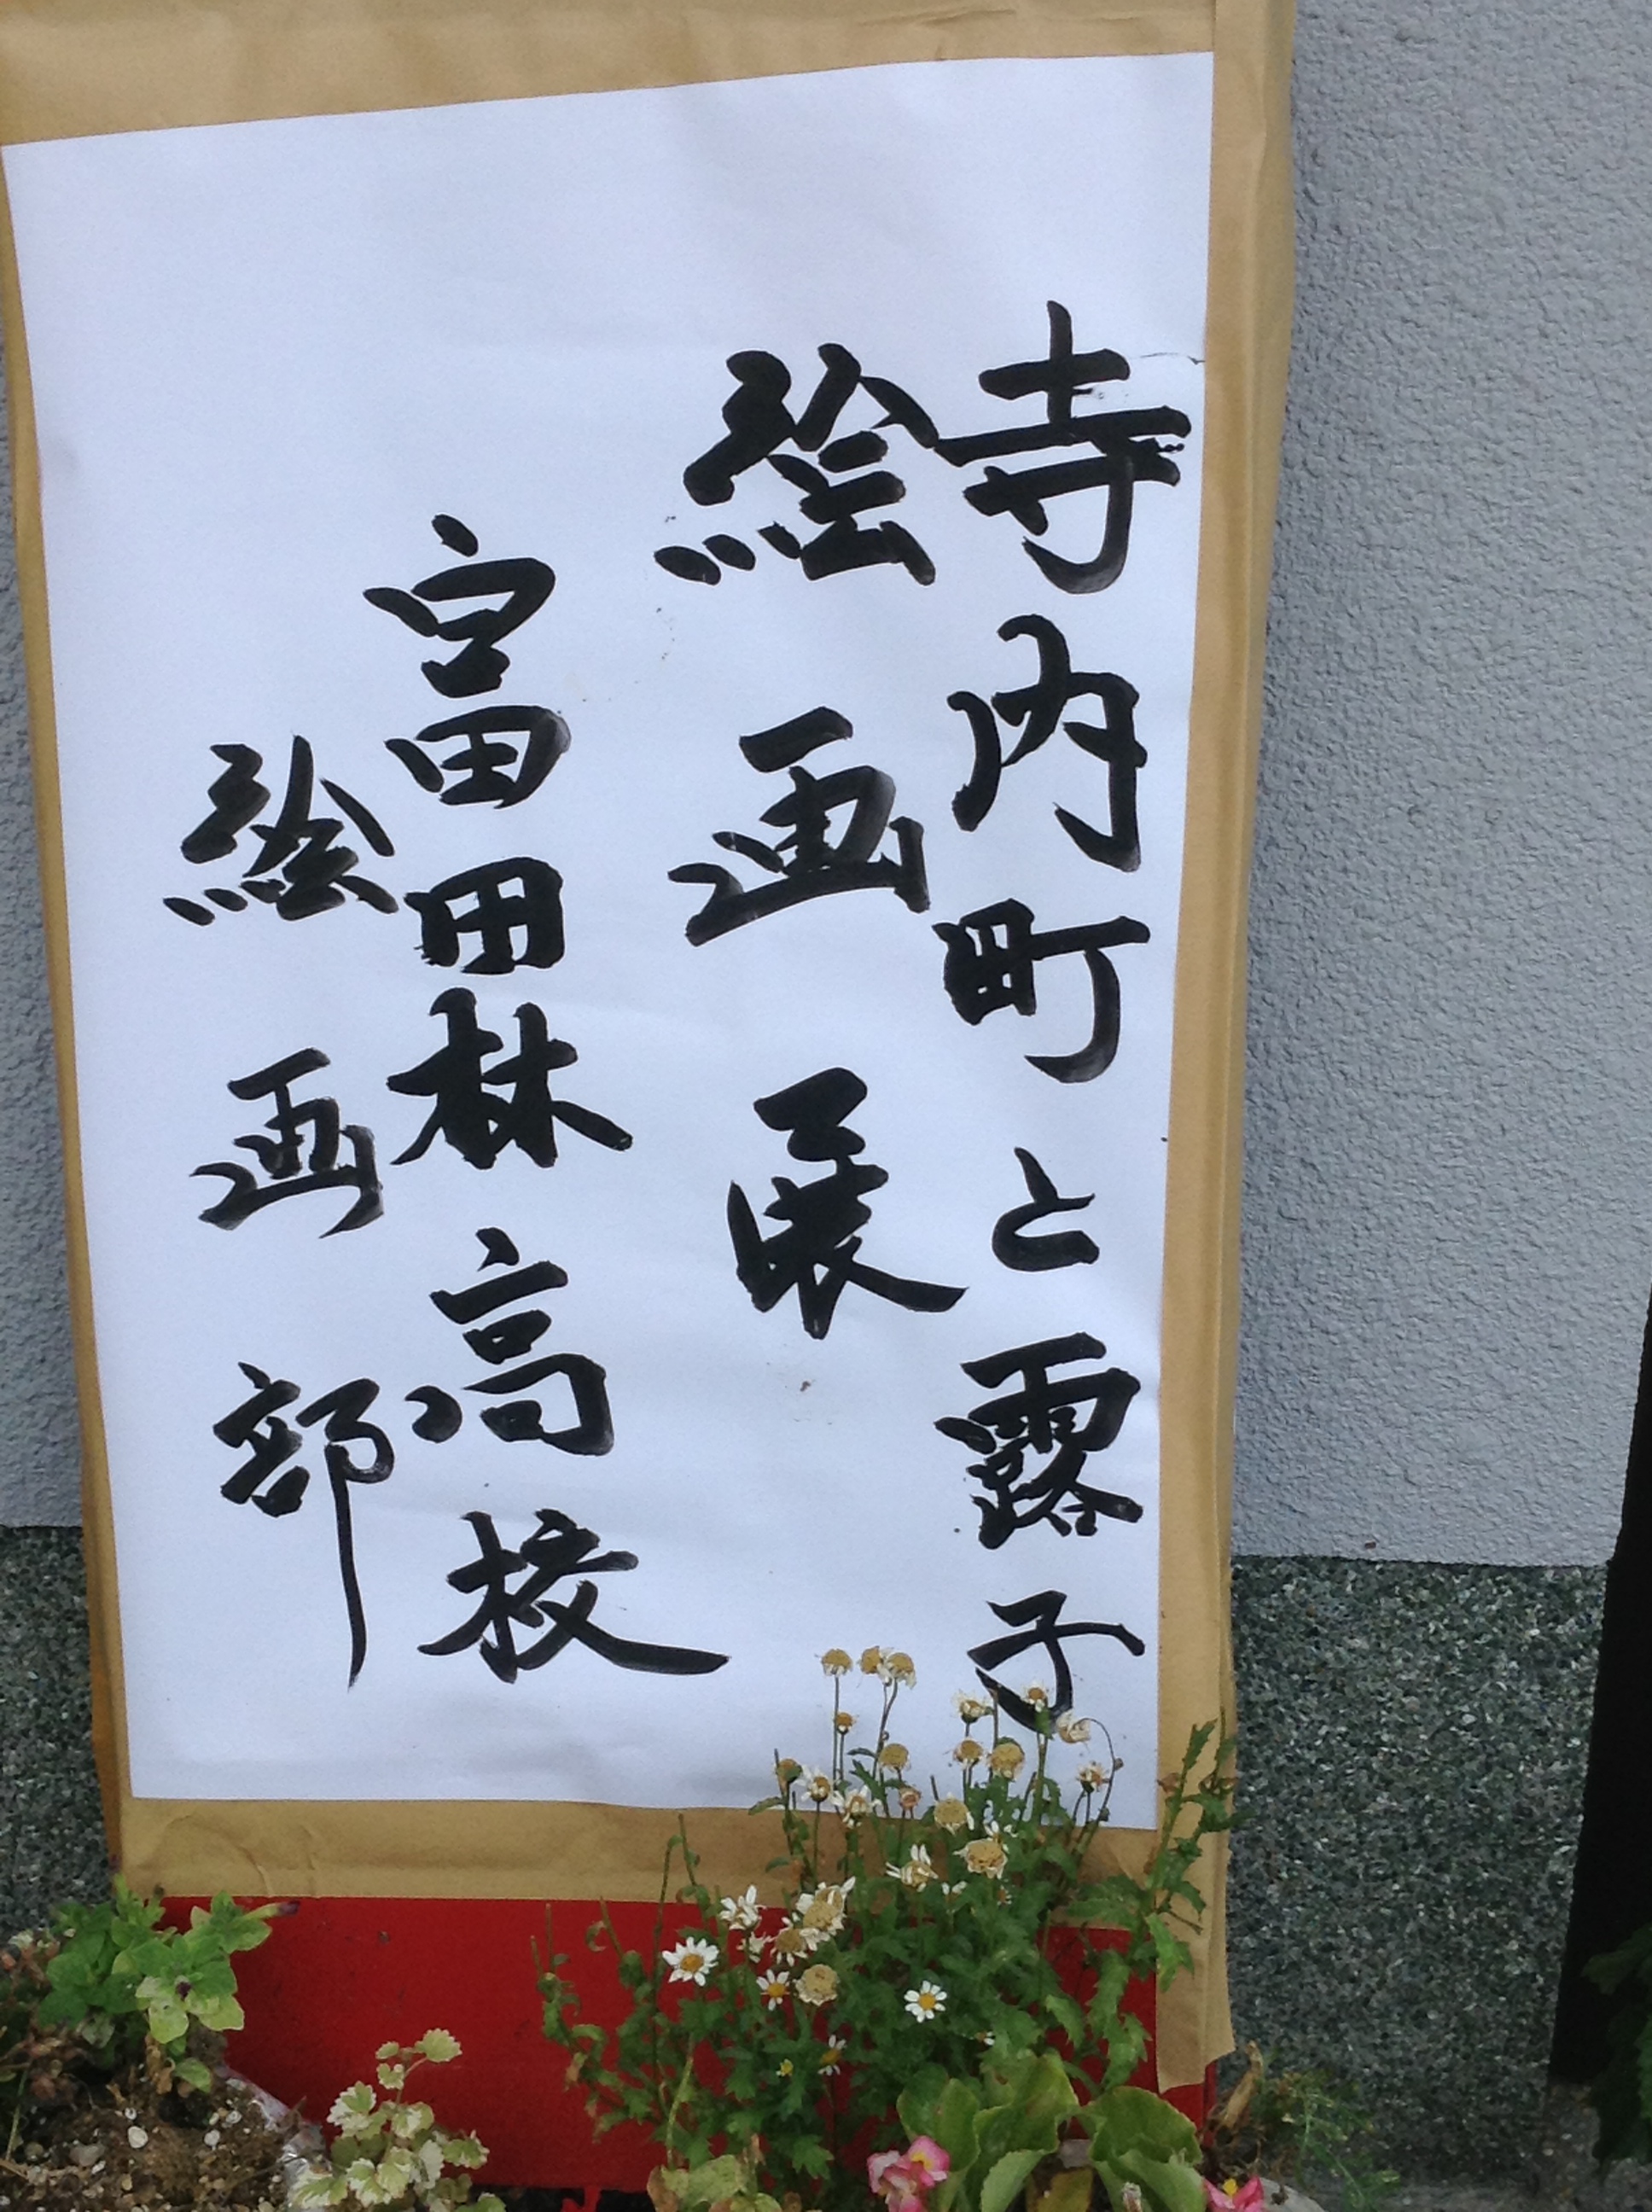 寺内町と露子
絵画展
富田林高校
絵画部